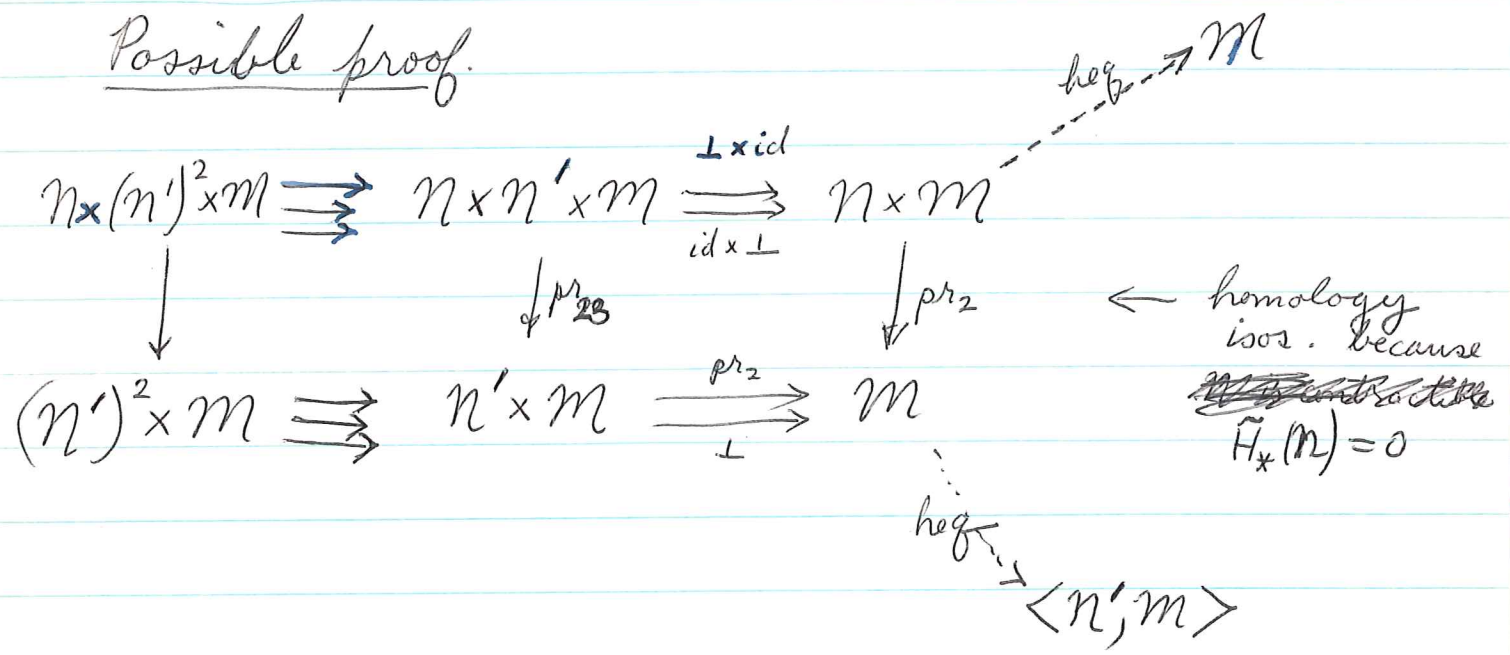 Possible proof.
heq
m
⊥ × id
n × (n')² × m ⇉ n × n' × m ⇉ n × m
id × ⊥
pr₂₃
pr₂
← homology
isos. because
H̃_*(n) = 0
pr₂
(n')² × m ⇉ n' × m ⇉ m
⊥
heq
<n', m>